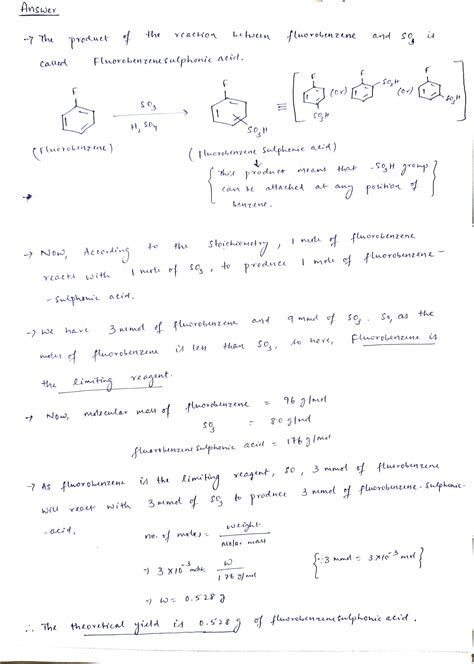 Answer
→ The product of the reaction between fluorobenzene and SO3 is
called Fluorobenzenesulphonic acid.
F F F F F
SO3 (or) SO3H (or)
H2SO4 ≡ SO3H
SO3H SO3H
(Fluorobenzene) (Fluorobenzene Sulphonic acid)
{ This product means that -SO3H group
can be attached at any position of
benzene. }
→ Now, According to the Stoichiometry, 1 mole of fluorobenzene
reacts with 1 mole of SO3, to produce 1 mole of fluorobenzene-
-sulphonic acid.
→ We have 3 mmol of fluorobenzene and 9 mmol of SO3. So, as the
moles of fluorobenzene is less than SO3, so here, Fluorobenzene is
the limiting reagent.
→ Now, molecular mass of fluorobenzene = 96 g/mol
SO3 = 80 g/mol
fluorobenzenesulphonic acid = 176 g/mol
→ As fluorobenzene is the limiting reagent, so, 3 mmol of fluorobenzene
will react with 3 mmol of SO3 to produce 3 mmol of fluorobenzene-sulphonic-
-acid.
no. of moles = weight / molar mass
→ 3 × 10⁻³ mole = w / 176 g/mol {∵ 3 mmol = 3×10⁻³ mol}
→ w = 0.528 g
∴ The theoretical yield is 0.528 g of fluorobenzenesulphonic acid.